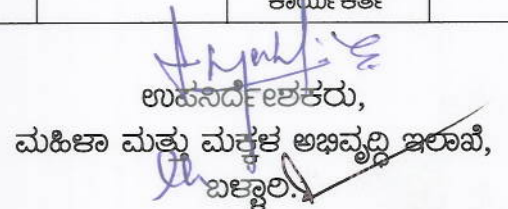 ಕಾರ್ಯಕರ್ತೆ
ಉಪನಿರ್ದೇಶಕರು,
ಮಹಿಳಾ ಮತ್ತು ಮಕ್ಕಳ ಅಭಿವೃದ್ಧಿ ಇಲಾಖೆ,
ಬಳ್ಳಾರಿ.